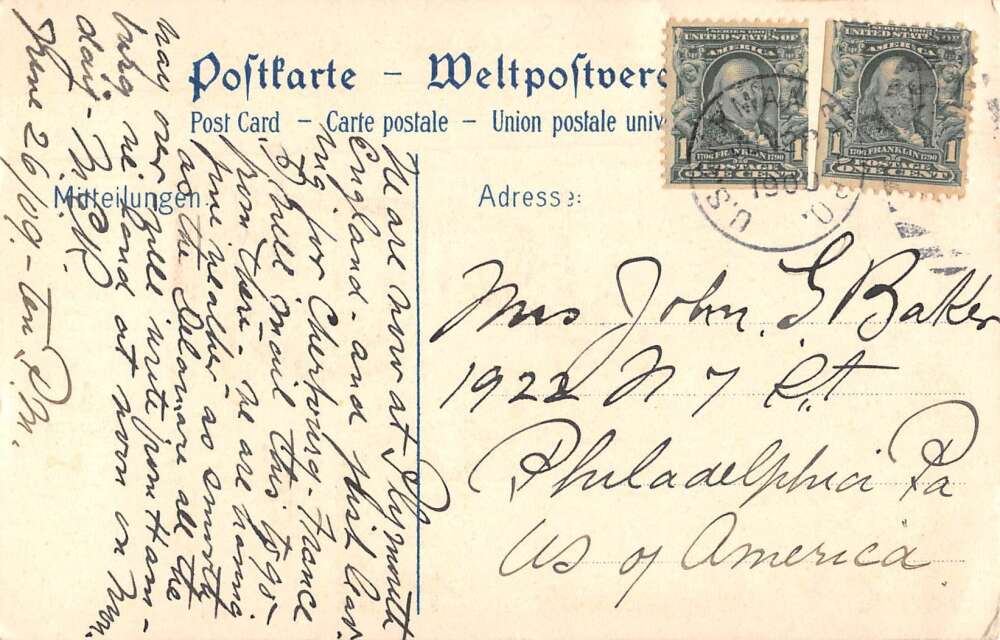 Postkarte – Weltpostvere
Post Card – Carte postale – Union postale univ
Mitteilungen.
Adresse:
SERIES 1902
UNITED STATES OF
AMERICA
1
1706 FRANKLIN 1790
POSTAGE
ONE CENT
SERIES 1902
UNITED STATES OF
AMERICA
1
1706 FRANKLIN 1790
POSTAGE
ONE CENT
U.S.
Mrs John. G Baker
1922 N 7 St
Philadelphia Pa
US of America
We are now at Plymouth
England - and just leav-
ing for Cherbourg - France
& shall mail this to go
from there - We are having
fine weather as smooth
as the Delaware all the
way over. Will write from Ham-
burg. We land at noon on Mon-
day -
June 26/09 - Ten P.M.